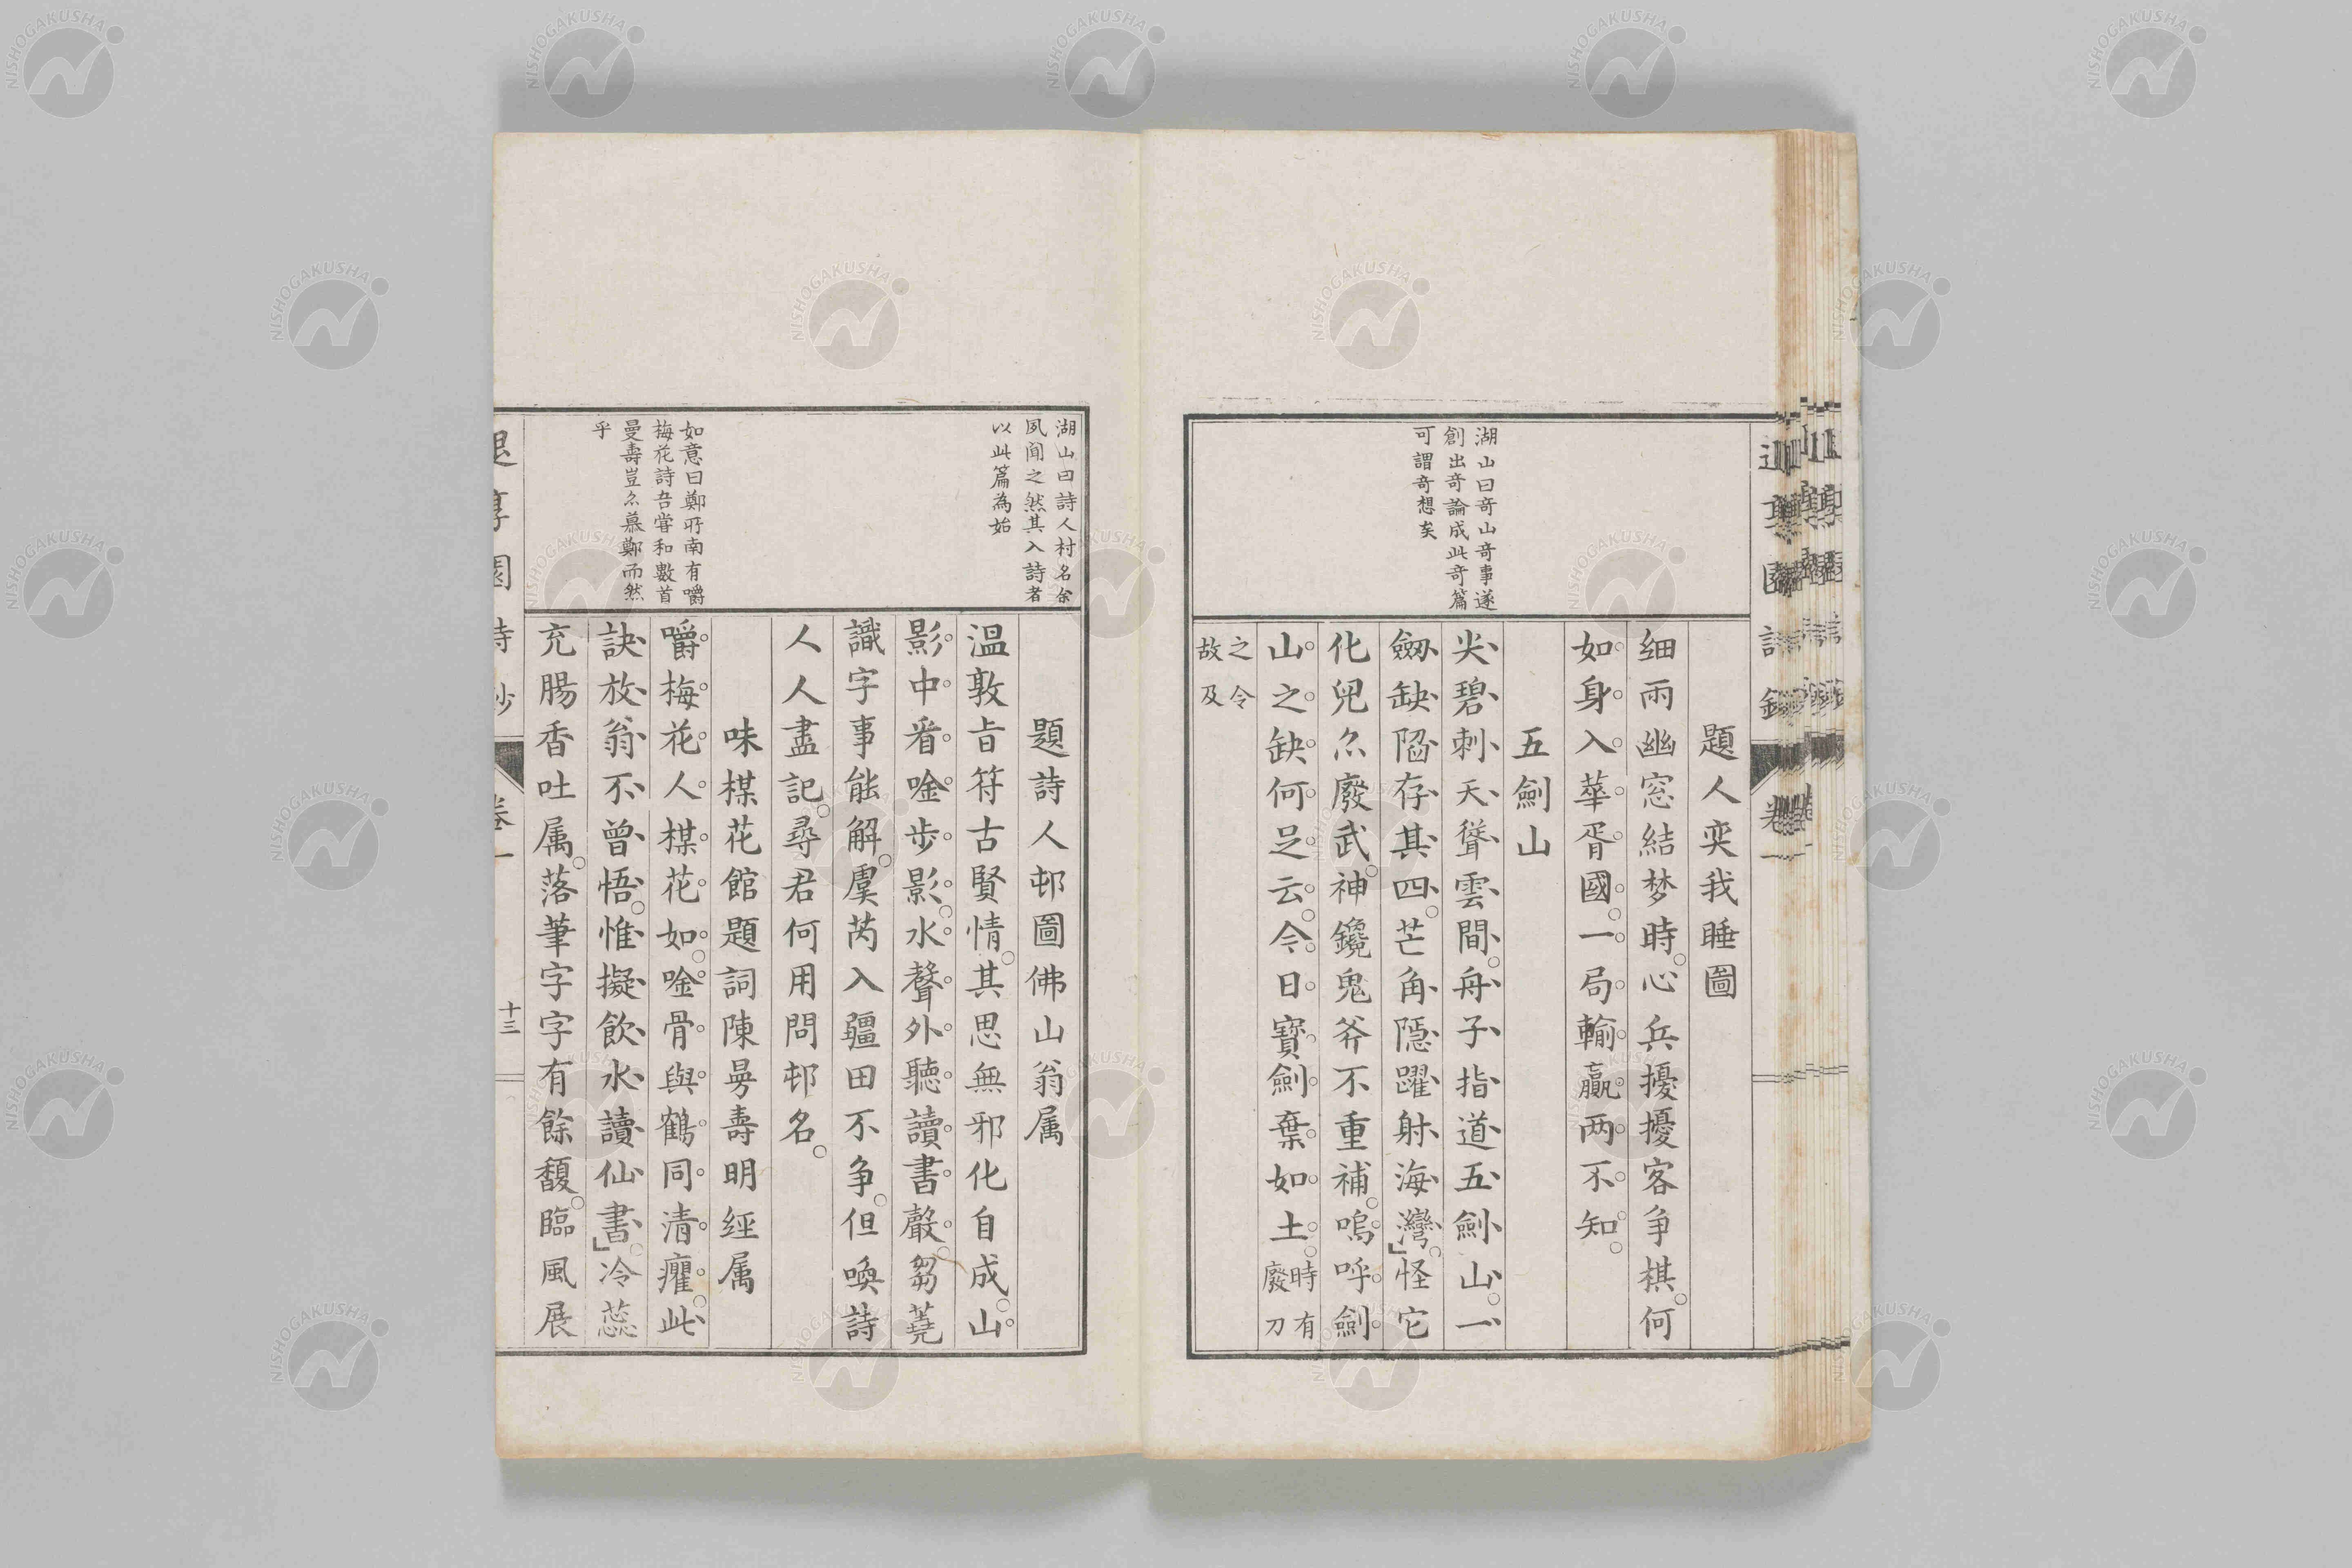 題人奕我睡圖
細雨幽窓結梦時○心兵擾擾客爭棋○何
如身入華胥國○一局輸贏兩不知○
五劍山
尖碧刺天聳雲間○舟子指道五劍山○一
劔缺陷存其四○芒角隱躍射海灣○」怪它
化兒尒廢武○神鑱鬼斧不重補○嗚呼劍
山之缺何足云○今日寶劍棄如土○時有
廢刀
之令
故及
湖山曰奇山奇事遂
創出奇論成此奇篇
可謂奇想矣
題詩人邨圖佛山翁属
温敦旨符古賢情○其思無邪化自成○山
影中看唫步影○水聲外聽讀書聲○芻蕘
識字事能解○虞芮入疆田不爭○但喚詩
人人盡記○尋君何用問邨名○
味楳花館題詞陳曼壽明經属
嚼梅花人楳花如○唫骨與鶴同清癯○此
訣放翁不曾悟○惟擬飲水讀仙書○」冷蕊
充腸香吐属○落筆字字有餘馥○臨風展
湖山曰詩人村名余
夙聞之然其入詩者
以此篇為始
如意曰鄭所南有嚼
梅花詩吾嘗和數首
曼壽豈尒慕鄭而然
乎
退享園詩鈔
卷一
十三
NISHOGAKUSHA